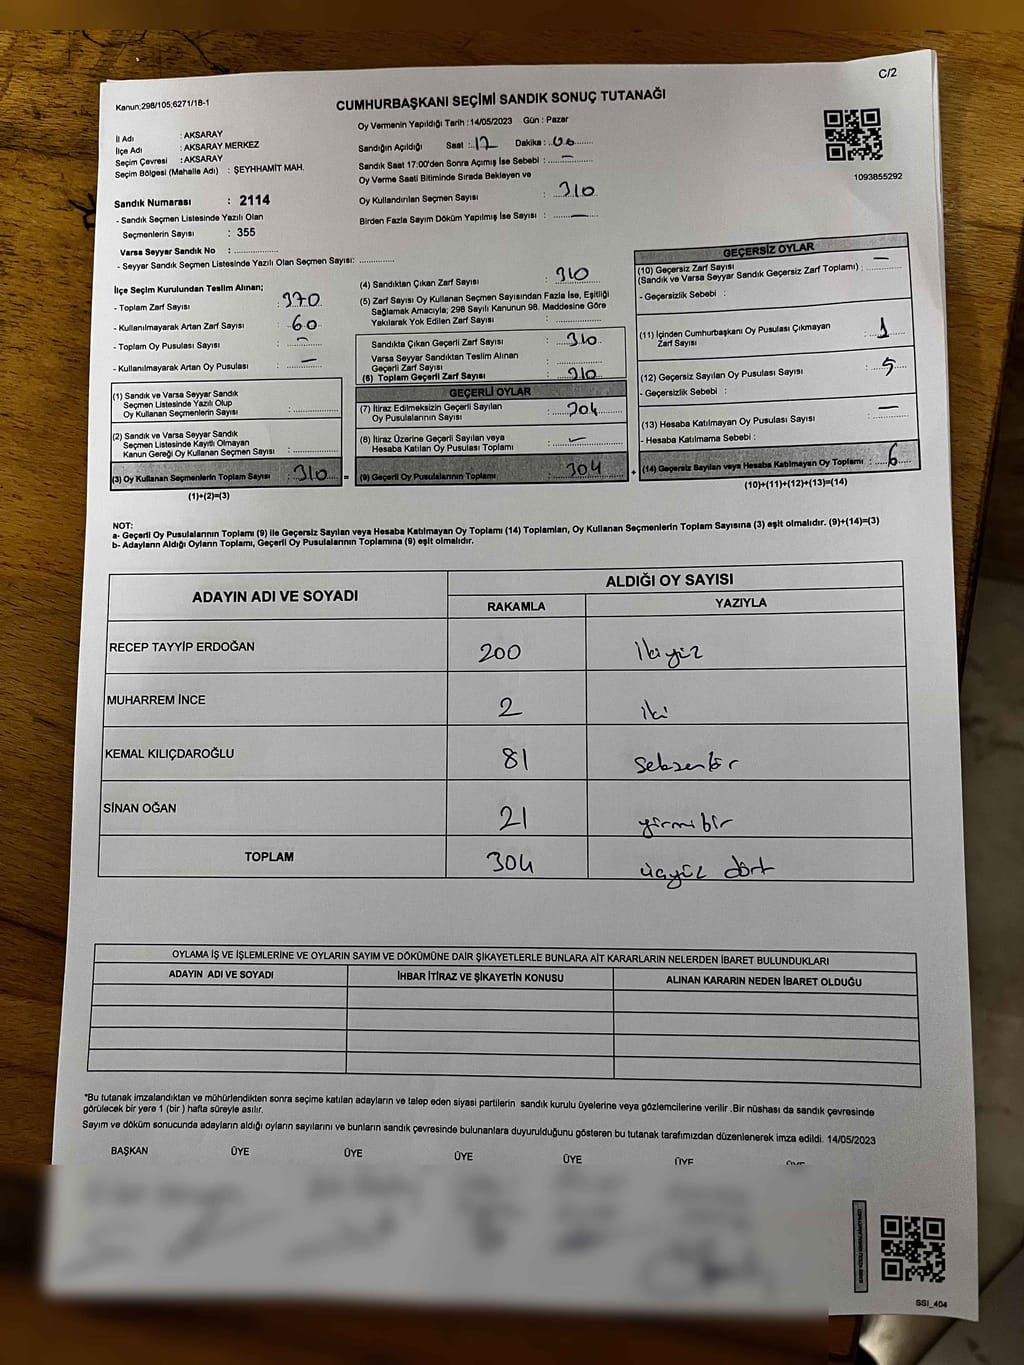 C/2
Kanun;298/105;6271/18-1
CUMHURBAŞKANI SEÇİMİ SANDIK SONUÇ TUTANAĞI
İl Adı : AKSARAY
İlçe Adı : AKSARAY MERKEZ
Seçim Çevresi : AKSARAY
Seçim Bölgesi (Mahalle Adı) : ŞEYHHAMİT MAH.
Sandık Numarası : 2114
- Sandık Seçmen Listesinde Yazılı Olan
Seçmenlerin Sayısı : 355
Varsa Seyyar Sandık No : ....................
- Seyyar Sandık Seçmen Listesinde Yazılı Olan Seçmen Sayısı: ............
Oy Vermenin Yapıldığı Tarih : 14/05/2023 Gün : Pazar
Sandığın Açıldığı Saat : 17 Dakika : 00
Sandık Saat 17:00'den Sonra Açımış İse Sebebi : —
Oy Verme Saati Bitiminde Sırada Bekleyen ve
Oy Kullandırılan Seçmen Sayısı : 310
Birden Fazla Sayım Döküm Yapılmış İse Sayısı : —
1093855292
İlçe Seçim Kurulundan Teslim Alınan;
- Toplam Zarf Sayısı : 370
- Kullanılmayarak Artan Zarf Sayısı : 60
- Toplam Oy Pusulası Sayısı : —
- Kullanılmayarak Artan Oy Pusulası : —
(1) Sandık ve Varsa Seyyar Sandık
Seçmen Listesinde Yazılı Olup
Oy Kullanan Seçmenlerin Sayısı : ............
(2) Sandık ve Varsa Seyyar Sandık
Seçmen Listesinde Kayıtlı Olmayan
Kanun Gereği Oy Kullanan Seçmen Sayısı : ............
(3) Oy Kullanan Seçmenlerin Toplam Sayısı : 310 =
(1)+(2)=(3)
(4) Sandıktan Çıkan Zarf Sayısı : 310
(5) Zarf Sayısı Oy Kullanan Seçmen Sayısından Fazla İse, Eşitliği
Sağlamak Amacıyla; 298 Sayılı Kanunun 98. Maddesine Göre
Yakılarak Yok Edilen Zarf Sayısı : ............
Sandıkta Çıkan Geçerli Zarf Sayısı : 310
Varsa Seyyar Sandıktan Teslim Alınan
Geçerli Zarf Sayısı : ............
(6) Toplam Geçerli Zarf Sayısı : 310
GEÇERLİ OYLAR
(7) İtiraz Edilmeksizin Geçerli Sayılan
Oy Pusulalarının Sayısı : 304
(8) İtiraz Üzerine Geçerli Sayılan veya
Hesaba Katılan Oy Pusulası Toplamı : —
(9) Geçerli Oy Pusulalarının Toplamı : 304 +
GEÇERSİZ OYLAR
(10) Geçersiz Zarf Sayısı
(Sandık ve Varsa Seyyar Sandık Geçersiz Zarf Toplamı) : —
- Geçersizlik Sebebi :
(11) İçinden Cumhurbaşkanı Oy Pusulası Çıkmayan
Zarf Sayısı : 1
(12) Geçersiz Sayılan Oy Pusulası Sayısı : 5
- Geçersizlik Sebebi :
(13) Hesaba Katılmayan Oy Pusulası Sayısı : —
- Hesaba Katılmama Sebebi :
(14) Geçersiz Sayılan veya Hesaba Katılmayan Oy Toplamı : 6
(10)+(11)+(12)+(13)=(14)
NOT:
a- Geçerli Oy Pusulalarının Toplamı (9) ile Geçersiz Sayılan veya Hesaba Katılmayan Oy Toplamı (14) Toplamları, Oy Kullanan Seçmenlerin Toplam Sayısına (3) eşit olmalıdır. (9)+(14)=(3)
b- Adayların Aldığı Oyların Toplamı, Geçerli Oy Pusulalarının Toplamına (9) eşit olmalıdır.
ADAYIN ADI VE SOYADI ALDIĞI OY SAYISI
RAKAMLA YAZIYLA
RECEP TAYYİP ERDOĞAN 200 ikiyüz
MUHARREM İNCE 2 iki
KEMAL KILIÇDAROĞLU 81 seksenbir
SİNAN OĞAN 21 yirmibir
TOPLAM 304 üçyüz dört
OYLAMA İŞ VE İŞLEMLERİNE VE OYLARIN SAYIM VE DÖKÜMÜNE DAİR ŞİKAYETLERLE BUNLARA AİT KARARLARIN NELERDEN İBARET BULUNDUKLARI
ADAYIN ADI VE SOYADI İHBAR İTİRAZ VE ŞİKAYETİN KONUSU ALINAN KARARIN NEDEN İBARET OLDUĞU
*Bu tutanak imzalandıktan ve mühürlendikten sonra seçime katılan adayların ve talep eden siyasi partilerin sandık kurulu üyelerine veya gözlemcilerine verilir .Bir nüshası da sandık çevresinde
görülecek bir yere 1 (bir ) hafta süreyle asılır.
Sayım ve döküm sonucunda adayların aldığı oyların sayılarını ve bunların sandık çevresinde bulunanlara duyurulduğunu gösteren bu tutanak tarafımızdan düzenlenerek imza edildi. 14/05/2023
BAŞKAN ÜYE ÜYE ÜYE ÜYE ÜYE ÜYE
SSI_404